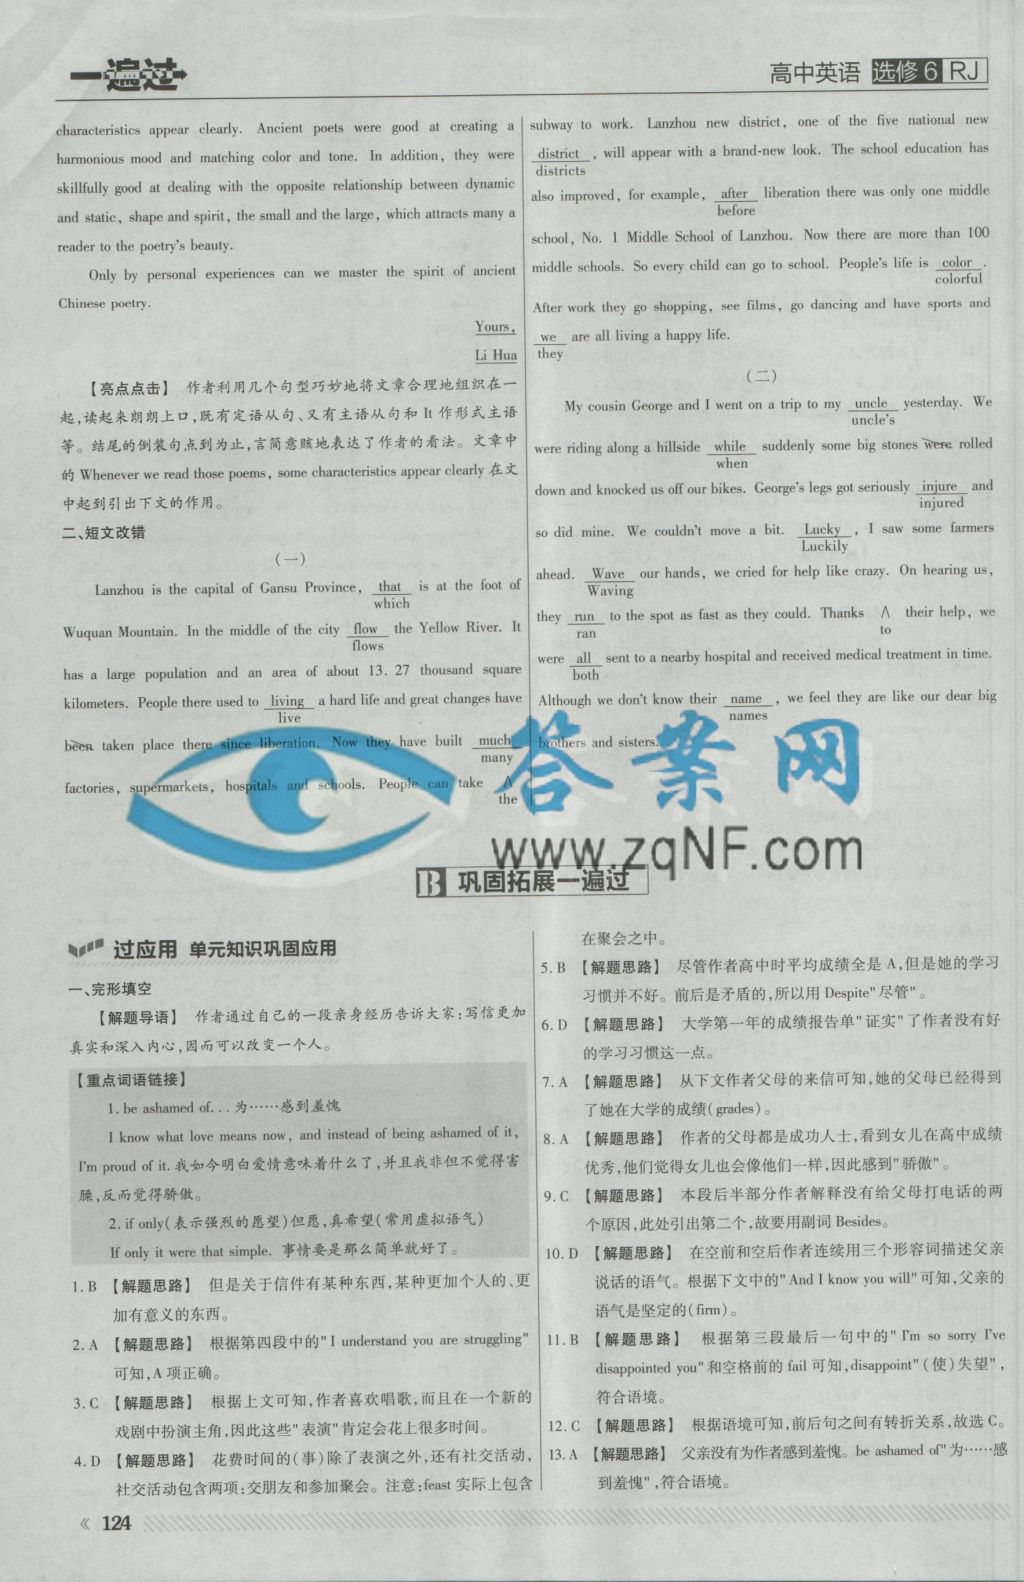 一遍过
高中英语 选修6 RJ
characteristics appear clearly. Ancient poets were good at creating a
harmonious mood and matching color and tone. In addition, they were
skillfully good at dealing with the opposite relationship between dynamic
and static, shape and spirit, the small and the large, which attracts many a
reader to the poetry's beauty.
Only by personal experiences can we master the spirit of ancient
Chinese poetry.
Yours,
Li Hua
【亮点点击】 作者利用几个句型巧妙地将文章合理地组织在一
起,读起来朗朗上口,既有定语从句、又有主语从句和 It 作形式主语
等。结尾的倒装句点到为止,言简意赅地表达了作者的看法。文章中
的 Whenever we read those poems, some characteristics appear clearly 在文
中起到引出下文的作用。
二、短文改错
(一)
Lanzhou is the capital of Gansu Province, that is at the foot of
which
Wuquan Mountain. In the middle of the city flow the Yellow River. It
flows
has a large population and an area of about 13. 27 thousand square
kilometers. People there used to living a hard life and great changes have
live
been taken place there since liberation. Now they have built much
many
factories, supermarkets, hospitals and schools. People can take ∧
the
subway to work. Lanzhou new district, one of the five national new
district , will appear with a brand-new look. The school education has
districts
also improved, for example, after liberation there was only one middle
before
school, No. 1 Middle School of Lanzhou. Now there are more than 100
middle schools. So every child can go to school. People's life is color .
colorful
After work they go shopping, see films, go dancing and have sports and
we are all living a happy life.
they
(二)
My cousin George and I went on a trip to my uncle yesterday. We
uncle's
were riding along a hillside while suddenly some big stones were rolled
when
down and knocked us off our bikes. George's legs got seriously injure and
injured
so did mine. We couldn't move a bit. Lucky , I saw some farmers
Luckily
ahead. Wave our hands, we cried for help like crazy. On hearing us,
Waving
they run to the spot as fast as they could. Thanks ∧ their help, we
ran to
were all sent to a nearby hospital and received medical treatment in time.
both
Although we don't know their name , we feel they are like our dear big
names
brothers and sisters.
答案网
www.zqNF.com
B 巩固拓展一遍过
过应用 单元知识巩固应用
一、完形填空
【解题导语】 作者通过自己的一段亲身经历告诉大家:写信更加
真实和深入内心,因而可以改变一个人。
【重点词语链接】
1. be ashamed of. . . 为……感到羞愧
I know what love means now, and instead of being ashamed of it,
I'm proud of it. 我如今明白爱情意味着什么了,并且我非但不觉得害
臊,反而觉得骄傲。
2. if only(表示强烈的愿望)但愿,真希望(常用虚拟语气)
If only it were that simple. 事情要是那么简单就好了。
1. B 【解题思路】 但是关于信件有某种东西,某种更加个人的、更
加有意义的东西。
2. A 【解题思路】 根据第四段中的"I understand you are struggling"
可知,A 项正确。
3. C 【解题思路】 根据上文可知,作者喜欢唱歌,而且在一个新的
戏剧中扮演主角,因此这些"表演"肯定会花上很多时间。
4. D 【解题思路】 花费时间的(事)除了表演之外,还有社交活动,
社交活动包含两项:交朋友和参加聚会。注意:feast 实际上包含
在聚会之中。
5. B 【解题思路】 尽管作者高中时平均成绩全是 A,但是她的学习
习惯并不好。前后是矛盾的,所以用 Despite"尽管"。
6. D 【解题思路】 大学第一年的成绩报告单"证实"了作者没有好
的学习习惯这一点。
7. A 【解题思路】 从下文作者父母的来信可知,她的父母已经得到
了她在大学的成绩(grades)。
8. A 【解题思路】 作者的父母都是成功人士,看到女儿在高中成绩
优秀,他们觉得女儿也会像他们一样,因此感到"骄傲"。
9. C 【解题思路】 本段后半部分作者解释没有给父母打电话的两
个原因,此处引出第二个,故要用副词 Besides。
10. D 【解题思路】 在空前和空后作者连续用三个形容词描述父亲
说话的语气。根据下文中的"And I know you will"可知,父亲的
语气是坚定的(firm)。
11. B 【解题思路】 根据第三段最后一句中的"I'm so sorry I've
disappointed you"和空格前的 fail 可知,disappoint"(使)失望",
符合语境。
12. C 【解题思路】 根据语境可知,前后句之间有转折关系,故选 C。
13. A 【解题思路】 父亲没有为作者感到羞愧。be ashamed of"为……感
到羞愧",符合语境。
« 124